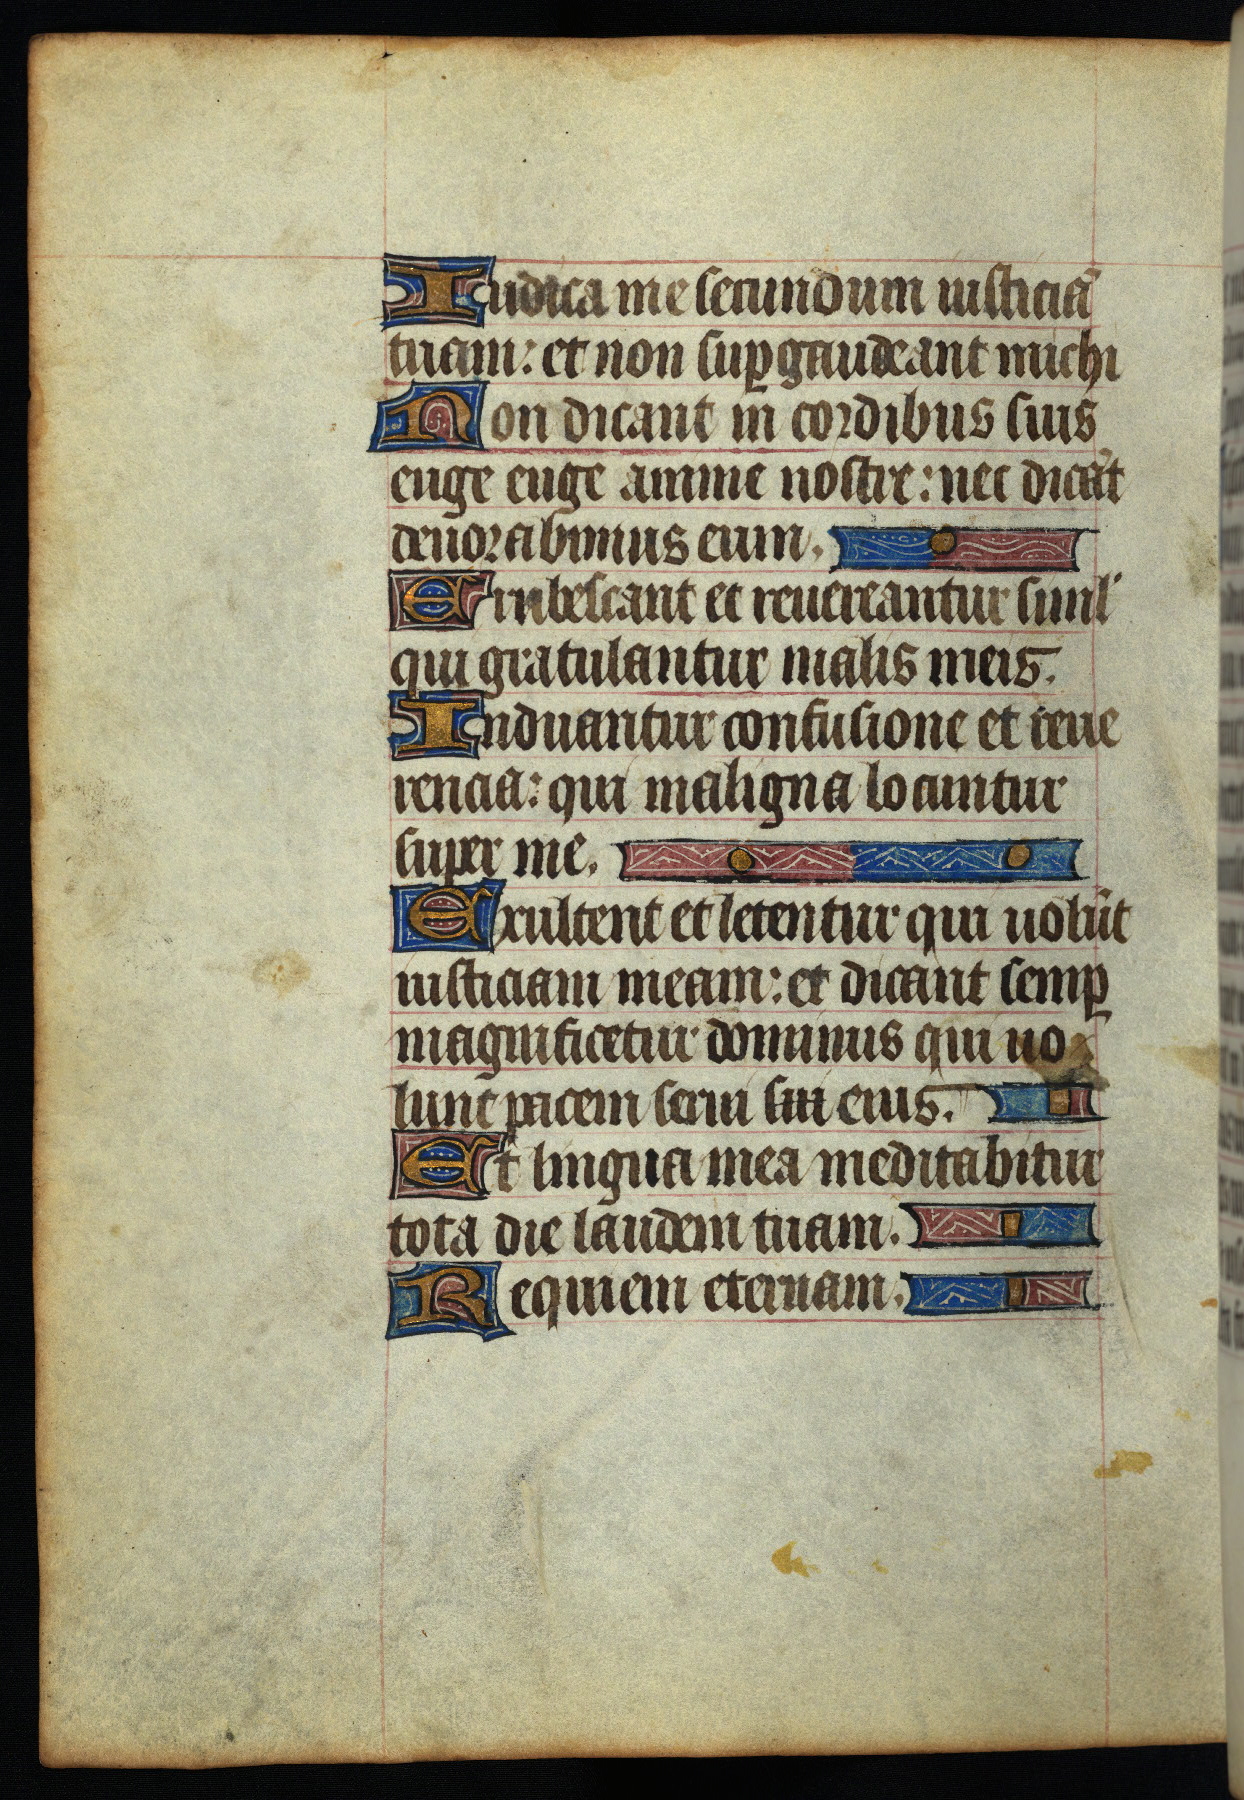 Iudica me secundum iusticiã
tuam: et non suꝑgaudeant michi
Non dicant in cordibus suis
euge euge anime nostre: nec dicãt
deuorabimus eum.
Erubescant et reuereantur simul
qui gratulantur malis meis.
Induantur confusione et reue
rencia: qui maligna locuntur
super me.
Exultent et letentur qui uolũt
iusticiam meam: et dicant semꝑ
magnificetur dominus qui uo
lunt pacem serui sui eius.
Et lingua mea meditabitur
tota die laudem tuam.
Requiem eternam.